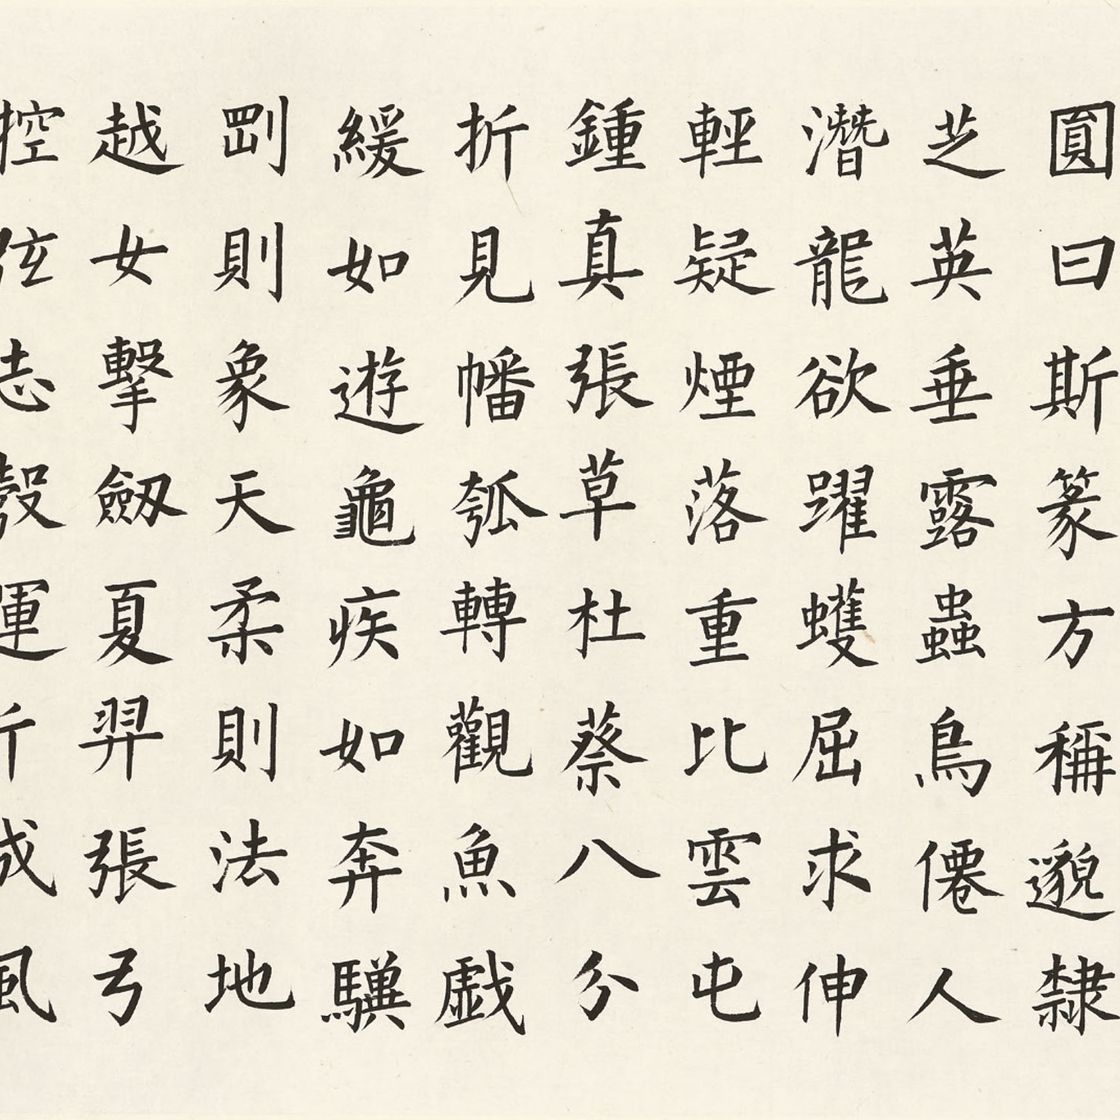 圎曰斯篆方稱邈隸
芝英垂露蟲鳥僊人
潛龍欲躍蠖屈求伸
輕疑煙落重比雲屯
鍾真張草杜蔡八分
折見幡瓠轉觀魚戯
緩如遊龜疾如奔驥
剛則象天柔則法地
越女擊劔夏羿張弓
控弦志彀運斤成風